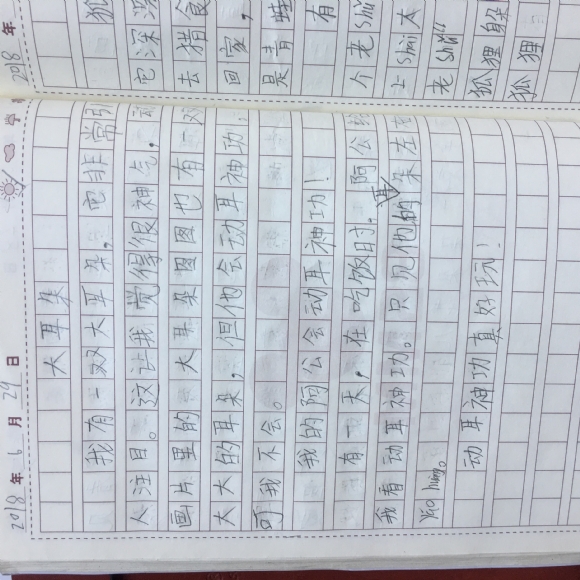 2018年6月29日
大耳朵
我有一双大耳朵,它非常引
人注目。这让我觉得很神气,动
画片里的大耳朵图图也有一双
大大的耳朵,但他会动耳神功,
可我不会。
我的阿公会动耳神功!
有一天,在吃饭时,阿公
我看动耳神功。只见他的耳朵在
动耳神功真好玩!
2018年
狐
它深深
去猎食
回家,
是青蛙
有
个老shi
老shi“
狐狸躲
狐狸